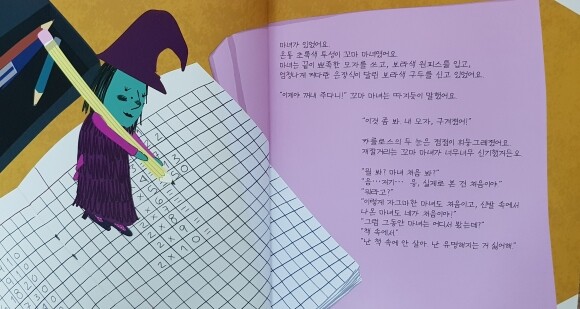 마녀가 있었어요.
온통 초록색 투성이 꼬마 마녀였어요.
마녀는 끝이 뾰족한 모자를 쓰고, 보라색 원피스를 입고,
엄청나게 커다란 은장식이 달린 보라색 구두를 신고 있었어요.
"이제야 꺼내 주다니!" 꼬마 마녀는 따지듯이 말했어요.
"이것 좀 봐! 내 모자, 구겨졌어!"
카를로스의 두 눈은 점점이 휘둥그레졌어요.
재잘거리는 꼬마 마녀가 너무너무 신기했거든요.
"뭘 봐? 마녀 처음 봐?"
"음…저기… 응, 실제로 본 건 처음이야."
"뭐라고?"
"이렇게 자그마한 마녀도 처음이고, 신발 속에서
나온 마녀도 네가 처음이야!"
"그럼 그동안 마녀는 어디서 봤는데?"
"책 속에서."
"난 책 속에 안 살아. 난 유명해지는 거 싫어해."